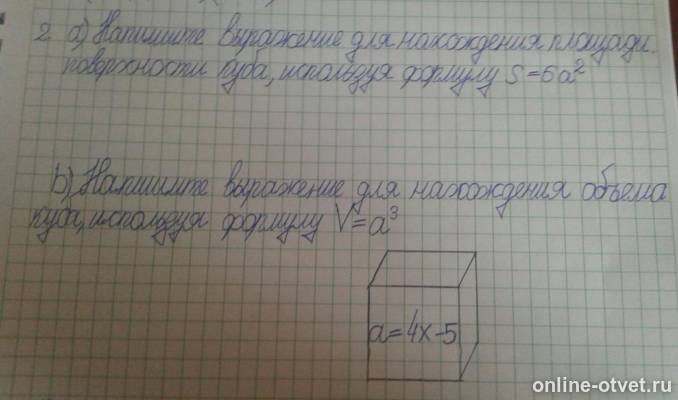 2 a) Напишите выражение для нахождения площади
поверхности куба, используя формулу S=6a²
b) Напишите выражение для нахождения объема
куба, используя формулу V=a³
a=4x-5
online-otvet.ru